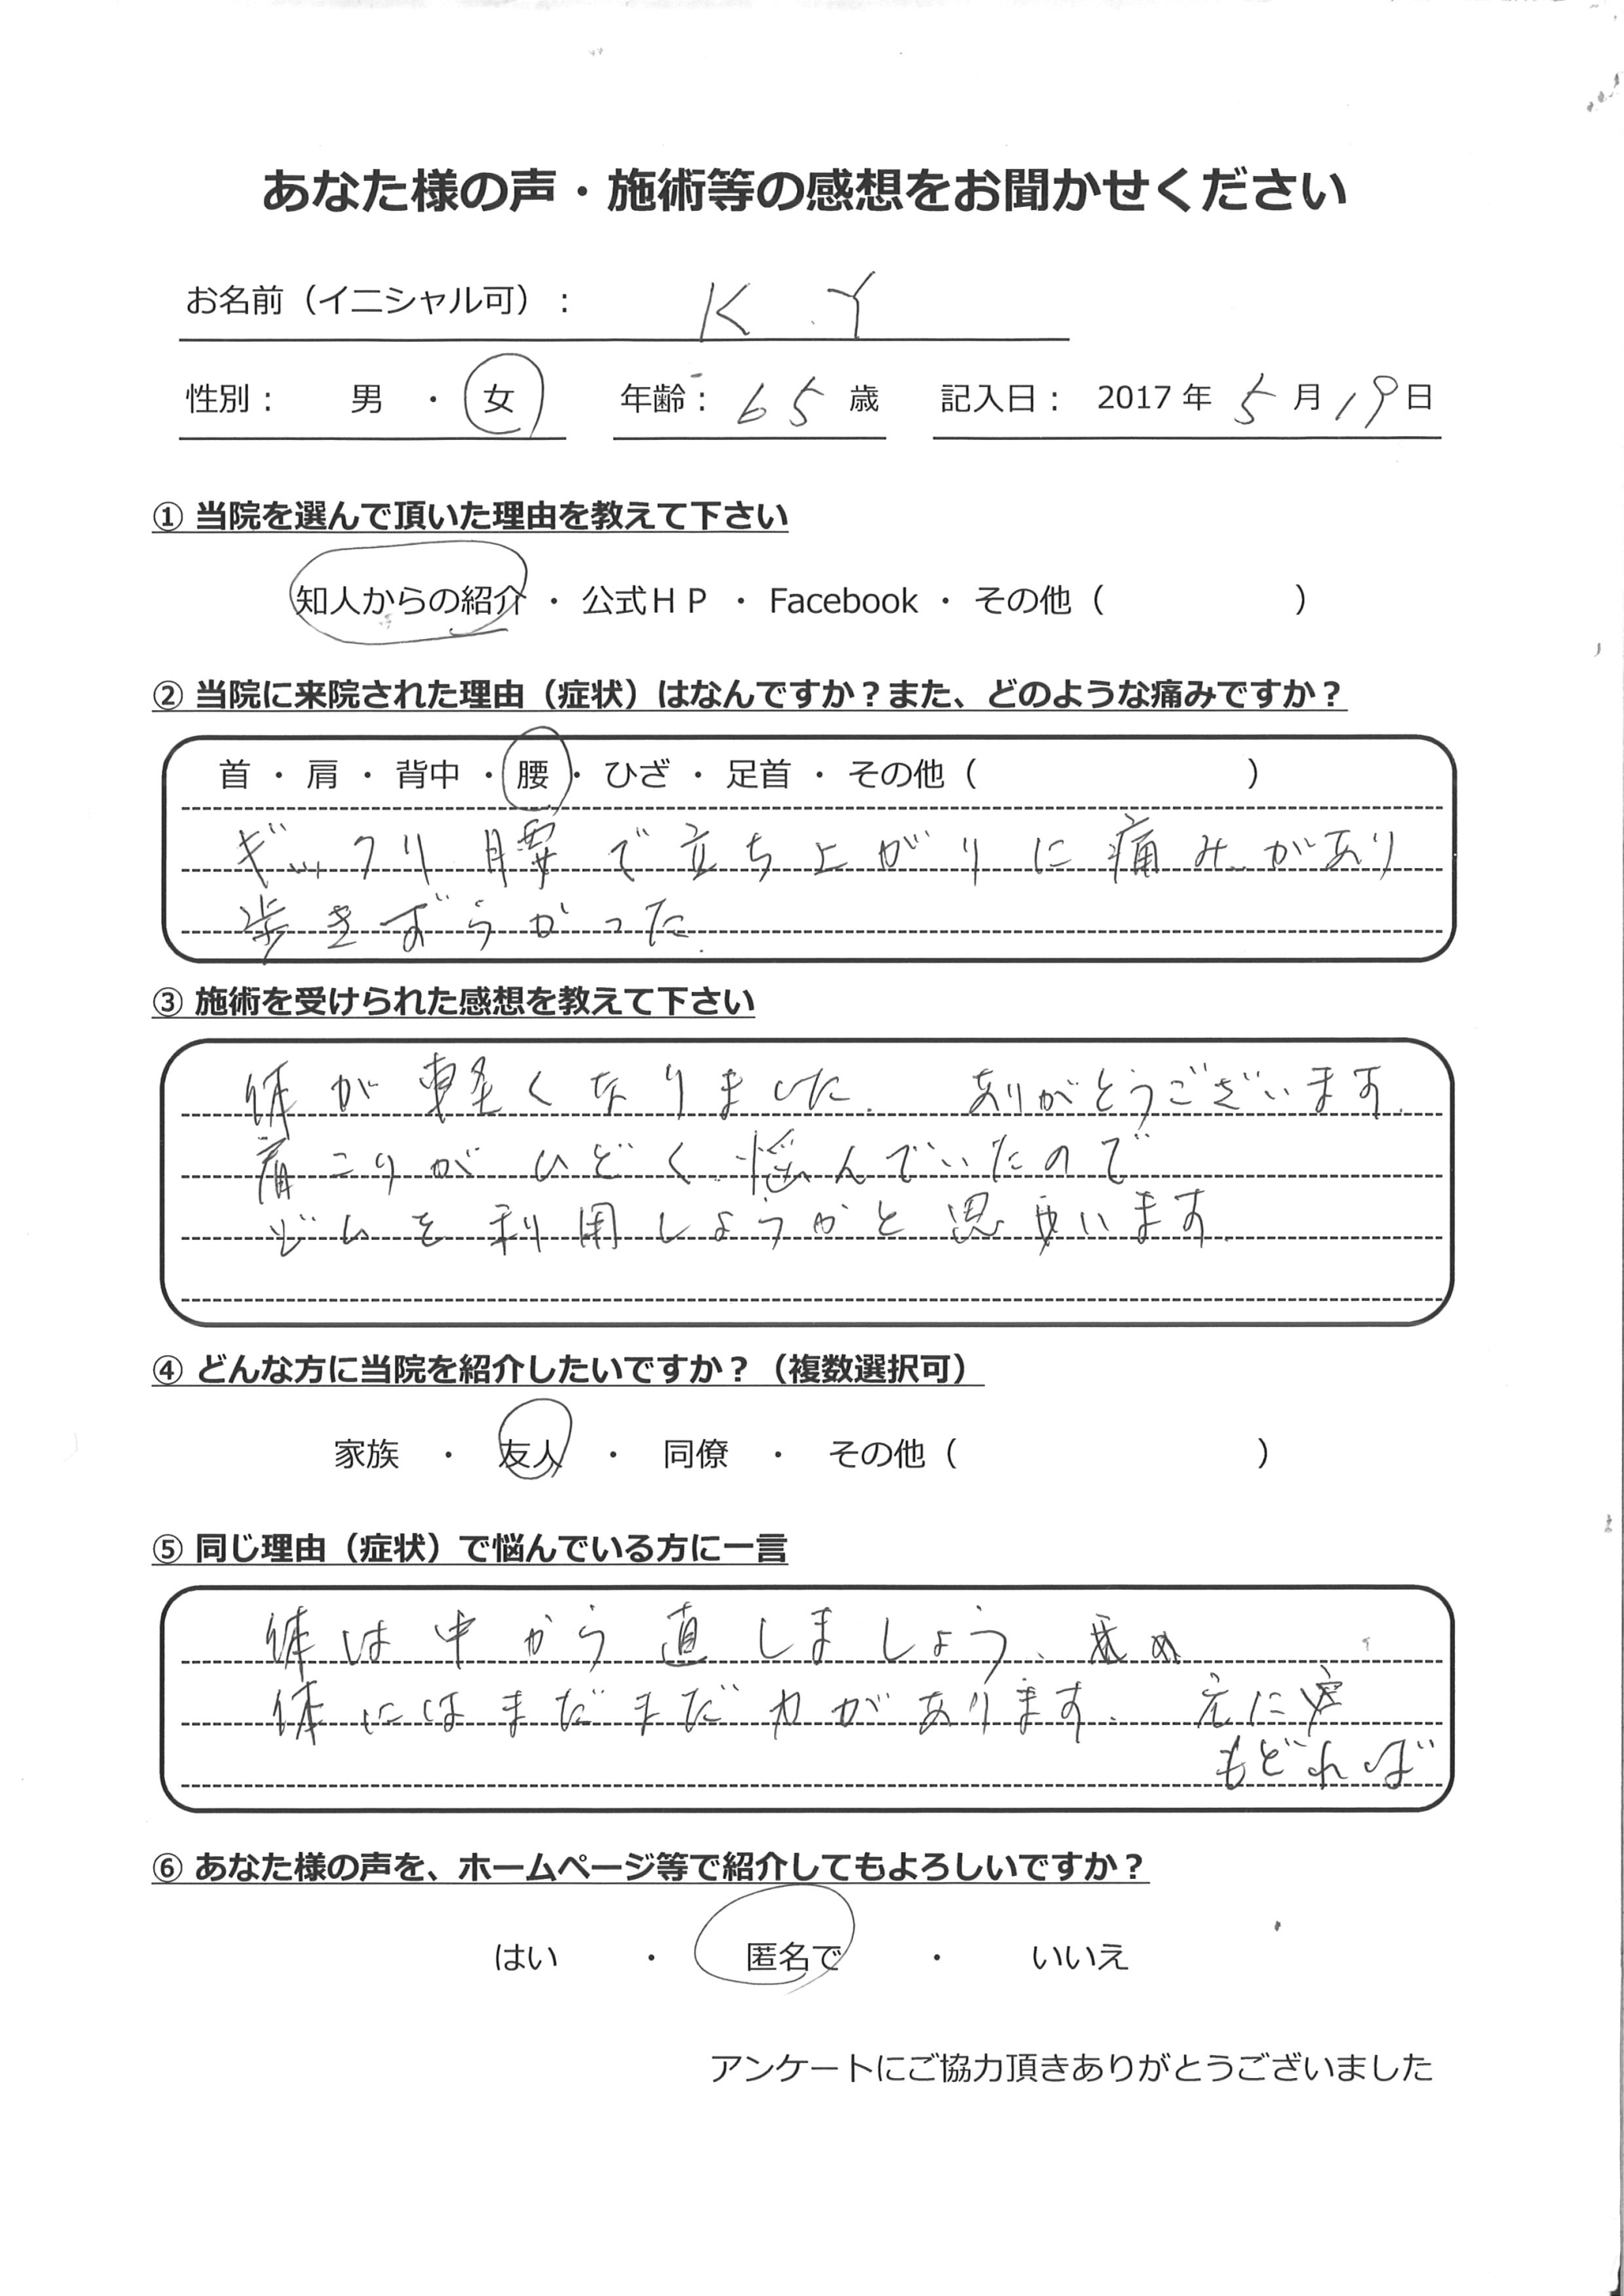 あなた様の声・施術等の感想をお聞かせください
お名前（イニシャル可）： K.Y
性別： 男 ・ 女 年齢： 65 歳 記入日： 2017 年 5 月 19 日
① 当院を選んで頂いた理由を教えて下さい
知人からの紹介 ・ 公式ＨＰ ・ Facebook ・ その他（ ）
② 当院に来院された理由（症状）はなんですか？また、どのような痛みですか？
首 ・ 肩 ・ 背中 ・ 腰 ・ ひざ ・ 足首 ・ その他（ ）
ギックリ腰で立ち上がりに痛みがあり
歩きずらかった.
③ 施術を受けられた感想を教えて下さい
体が軽くなりました. ありがとうございます.
肩こりがひどく悩んでいたので
ジムを利用しようかと思います.
④ どんな方に当院を紹介したいですか？（複数選択可）
家族 ・ 友人 ・ 同僚 ・ その他（ ）
⑤ 同じ理由（症状）で悩んでいる方に一言
体は中から直しましょう、
体にはまだまだ力があります. 元に
もどれば
⑥ あなた様の声を、ホームページ等で紹介してもよろしいですか？
はい ・ 匿名で ・ いいえ
アンケートにご協力頂きありがとうございました